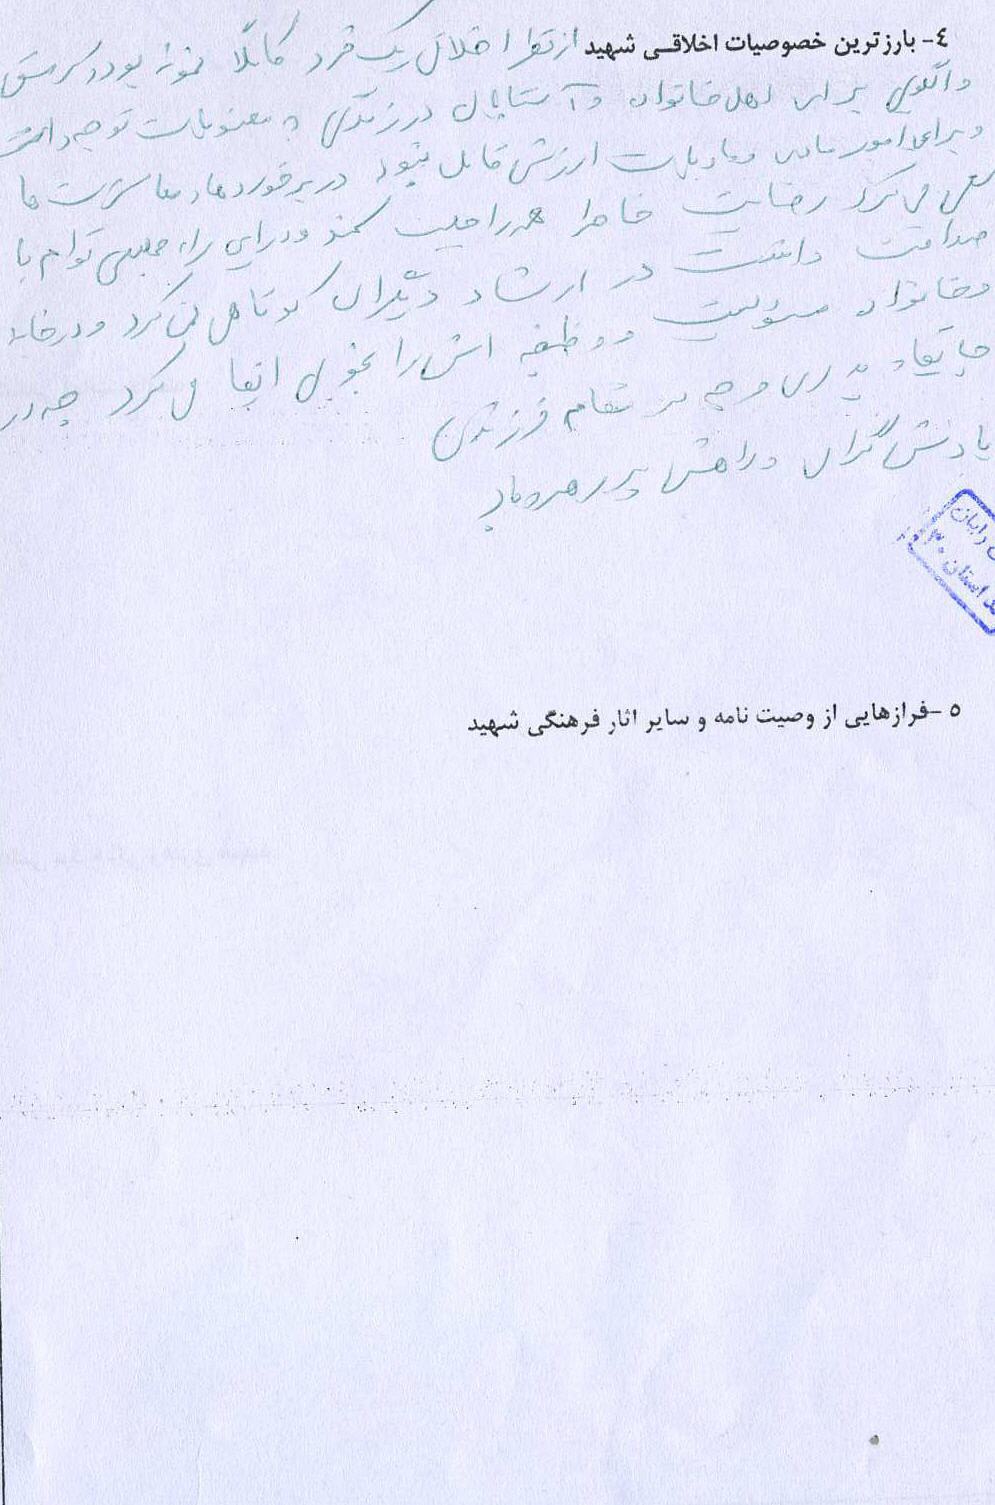 ٤- بارزترین خصوصیات اخلاقی شهید از نظر اخلاق یک فرد کاملاً نمونه بود و سرمشق
و الگوی برای اهل خانواده و آشنایان در زندگی به معنویات توجه داشت
و برای امور مادی و مادیات ارزش قایل نبود در برخوردها و معاشرت ها
سعی می کرد رضایت خاطر همه را جلب کند و در این راه توام با
صداقت داشت در ارشاد دیگران کوتاهی نمی کرد و در خانه
و خانواده مسئولیت و وظیفه اش را بخوبی ایفا می کرد چه در
جایگاه پدری و چه در مقام فرزندی
یادش گرامی و راهش پر رهرو باد
رایان
استان
۵ -فرازهایی از وصیت نامه و سایر اثار فرهنگی شهید